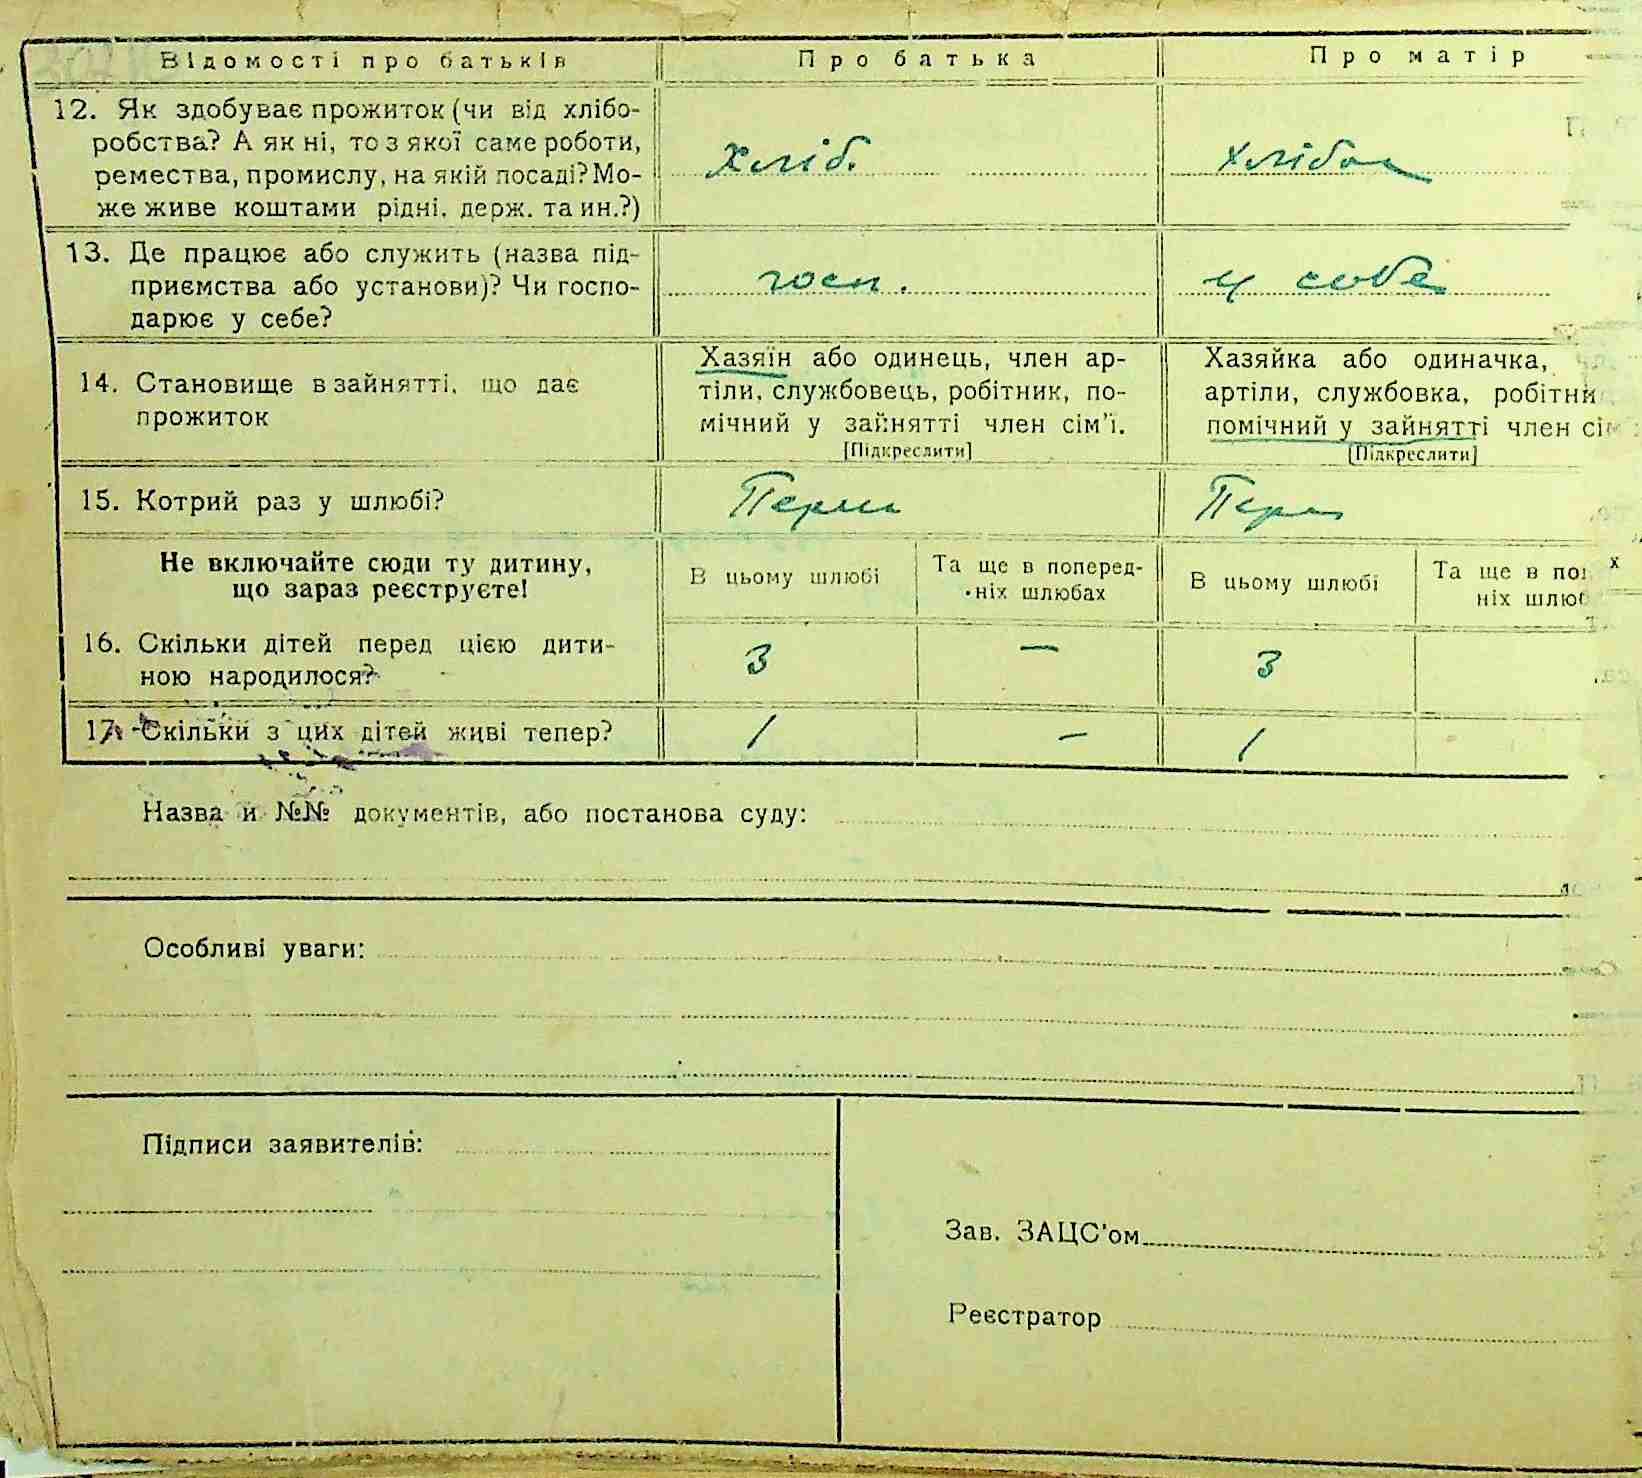 Відомості про батьків Про батька Про матір
12. Як здобуває прожиток (чи від хлібо-
робства? А як ні, то з якої саме роботи,
ремества, промислу, на якій посаді? Мо-
же живе коштами рідні, держ. та ин.?)
Хліб. Хлібор
13. Де працює або служить (назва під-
приємства або установи)? Чи госпо-
дарює у себе?
госп. у себе
14. Становище в зайнятті, що дає
прожиток
Хазяїн або одинець, член ар-
тіли, службовець, робітник, по-
мічний у зайнятті член сім'ї.
[Підкреслити]
Хазяйка або одиначка,
артіли, службовка, робітни
помічний у зайнятті член сім
[Підкреслити]
15. Котрий раз у шлюбі?
Перши Перш
Не включайте сюди ту дитину,
що зараз реєструєте!
В цьому шлюбі
Та ще в поперед-
ніх шлюбах
В цьому шлюбі
Та ще в по
ніх шлюб
16. Скільки дітей перед цією дити-
ною народилося?
3 — 3
17. Скільки з цих дітей живі тепер?
1 — 1
Назва й №№ документів, або постанова суду:
Особливі уваги:
Підписи заявителів:
Зав. ЗАЦС'ом
Реєстратор